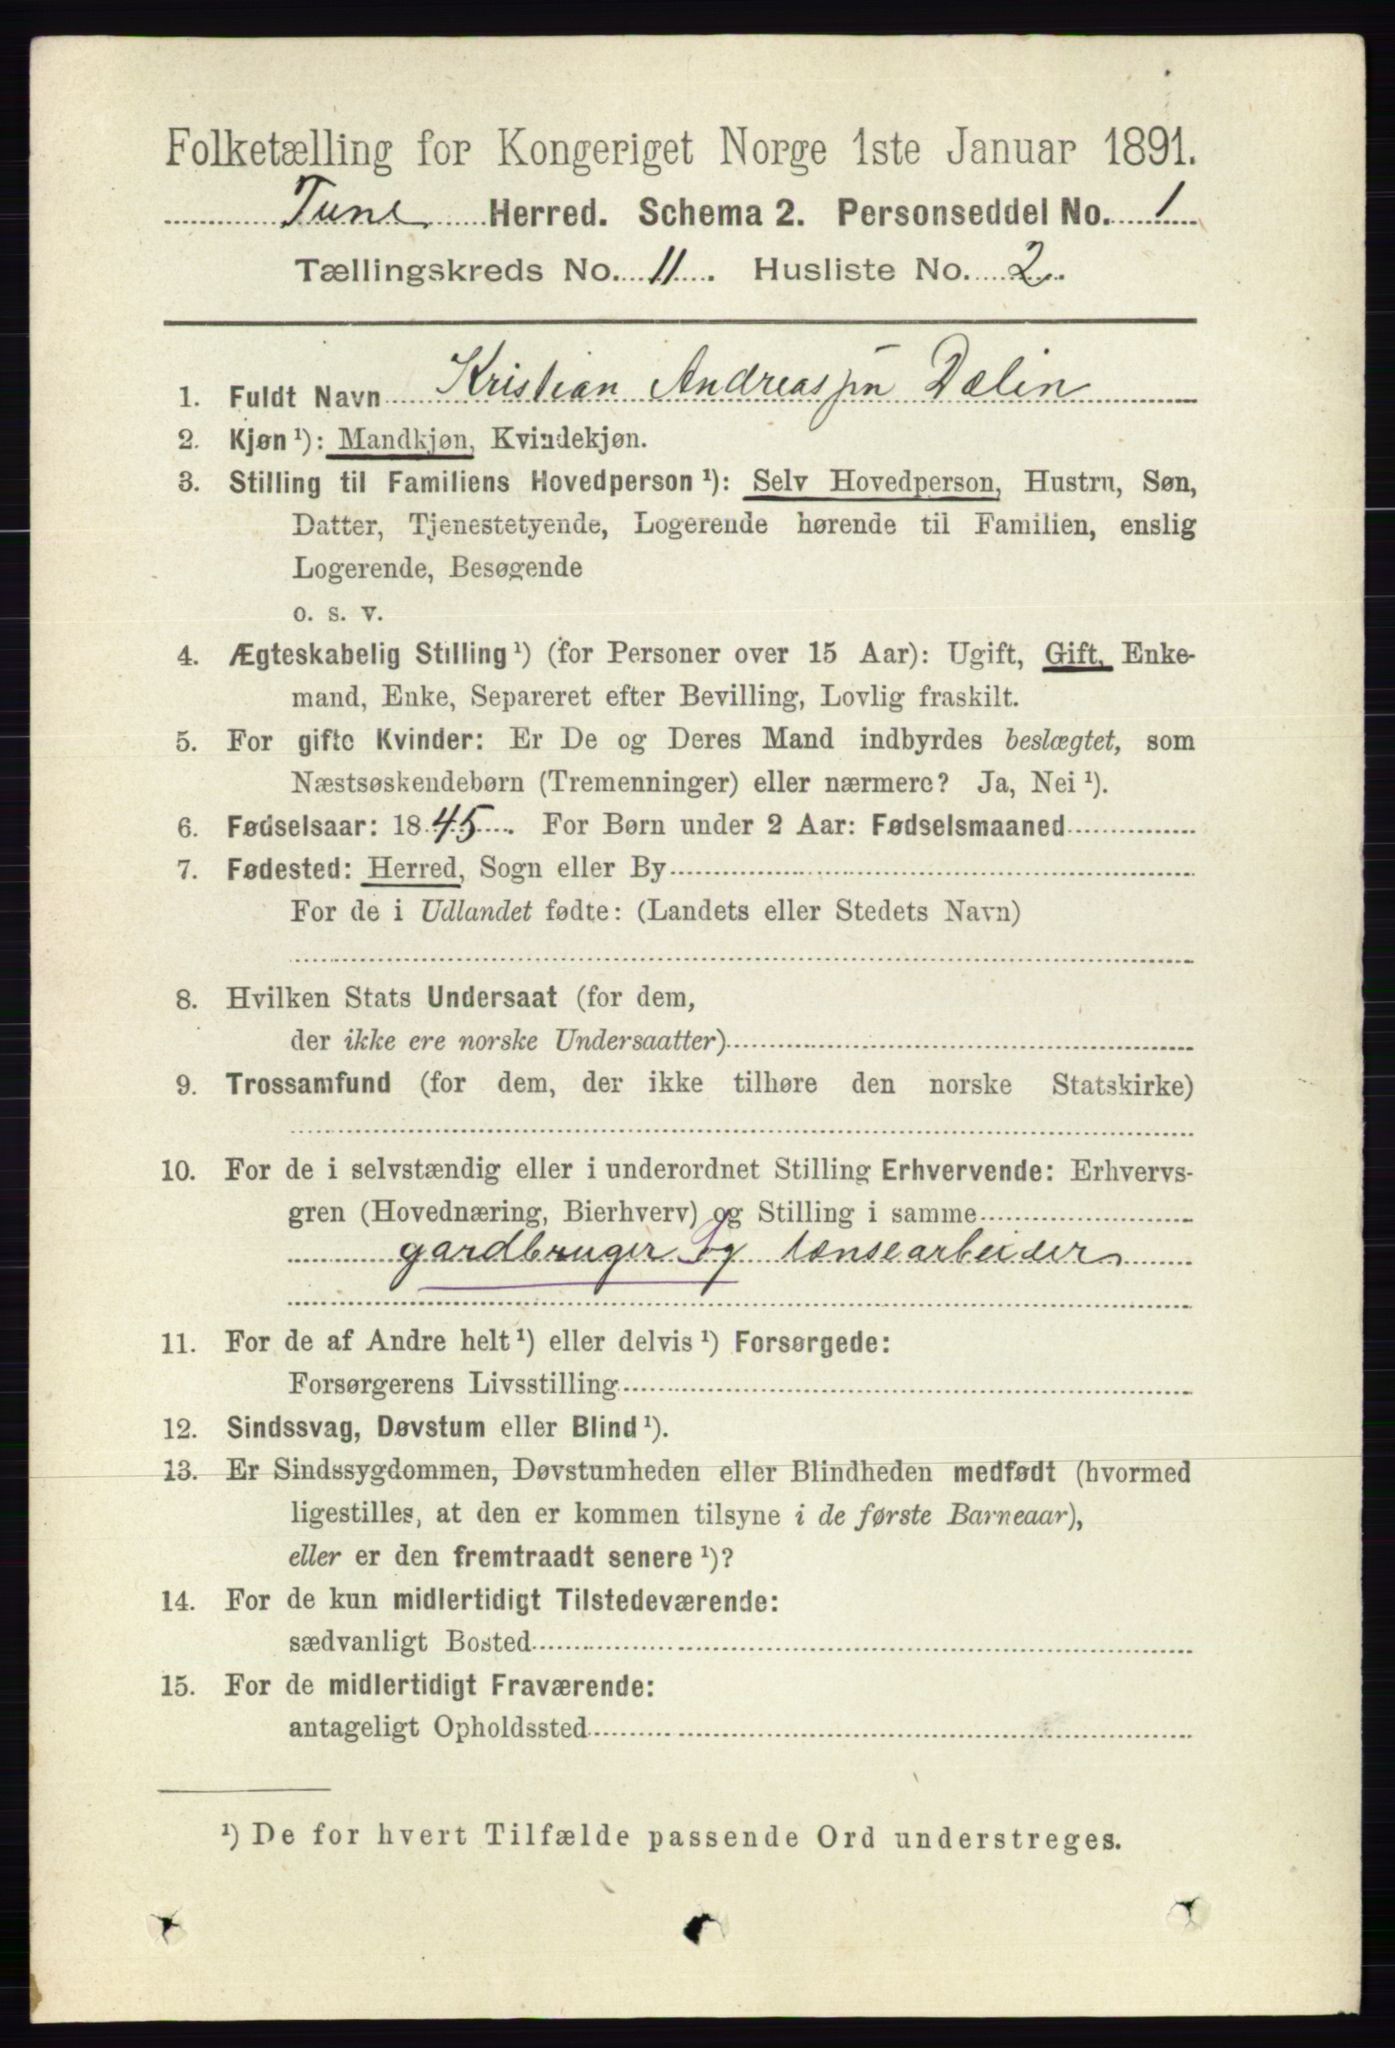 Folketælling for Kongeriget Norge 1ste Januar 1891.
Tune Herred. Schema 2. Personseddel No. 1
Tællingskreds No. 11. Husliste No. 2.
1. Fuldt Navn Kristian Andreassen Dælin
2. Kjøn ¹): Mandkjøn, Kvindekjøn.
3. Stilling til Familiens Hovedperson ¹): Selv Hovedperson, Hustru, Søn,
Datter, Tjenestetyende, Logerende hørende til Familien, enslig
Logerende, Besøgende
o. s. v.
4. Ægteskabelig Stilling ¹) (for Personer over 15 Aar): Ugift, Gift, Enke-
mand, Enke, Separeret efter Bevilling, Lovlig fraskilt.
5. For gifte Kvinder: Er De og Deres Mand indbyrdes beslægtet, som
Næstsøskendebørn (Tremenninger) eller nærmere? Ja, Nei ¹).
6. Fødselsaar: 1845. For Børn under 2 Aar: Fødselsmaaned
7. Fødested: Herred, Sogn eller By
For de i Udlandet fødte: (Landets eller Stedets Navn)
8. Hvilken Stats Undersaat (for dem,
der ikke ere norske Undersaatter)
9. Trossamfund (for dem, der ikke tilhøre den norske Statskirke)
10. For de i selvstændig eller i underordnet Stilling Erhvervende: Erhvervs-
gren (Hovednæring, Bierhverv) og Stilling i samme
gardbruger og lænsearbeider
11. For de af Andre helt ¹) eller delvis ¹) Forsørgede:
Forsørgerens Livsstilling
12. Sindssvag, Døvstum eller Blind ¹).
13. Er Sindssygdommen, Døvstumheden eller Blindheden medfødt (hvormed
ligestilles, at den er kommen tilsyne i de første Barneaar),
eller er den fremtraadt senere ¹)?
14. For de kun midlertidigt Tilstedeværende:
sædvanligt Bosted
15. For de midlertidigt Fraværende:
antageligt Opholdssted
¹) De for hvert Tilfælde passende Ord understreges.